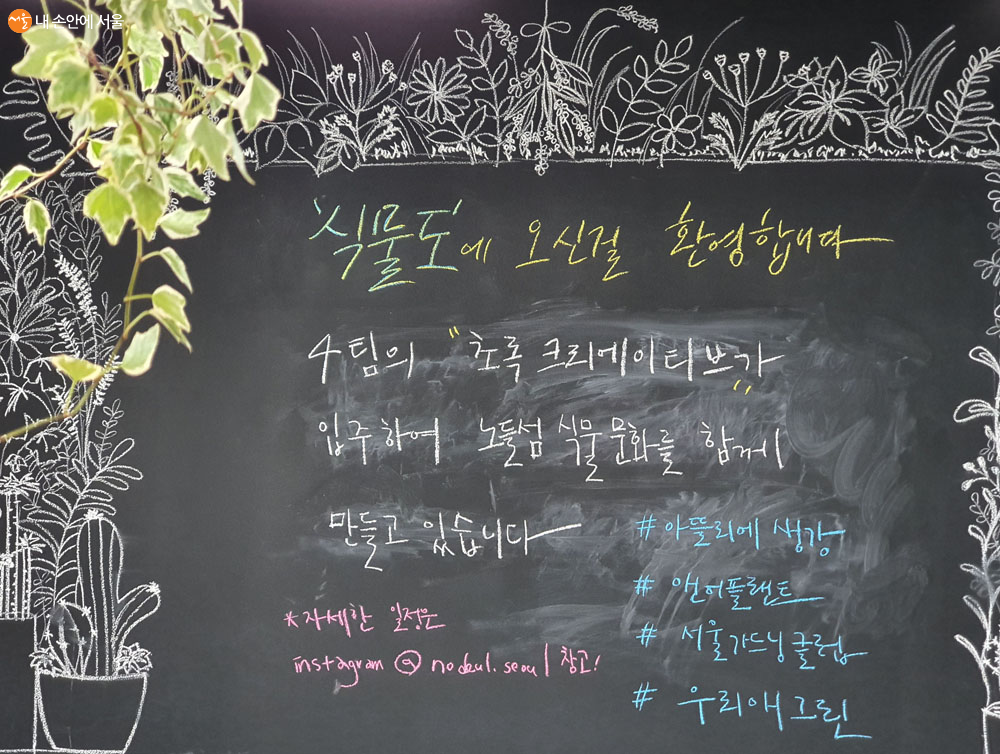 서울 내 손안에 서울
'식물도'에 오신걸 환영합니다
4팀의 "초록 크리에이티브"가
입주하여 노들섬 식물문화를 함께
만들고 있습니다
#아뜰리에 생강
# 앤어플랜트
# 서울가드닝클럽
# 우리애그린
*자세한 일정은
instagram @nodeul.seoul 참고!